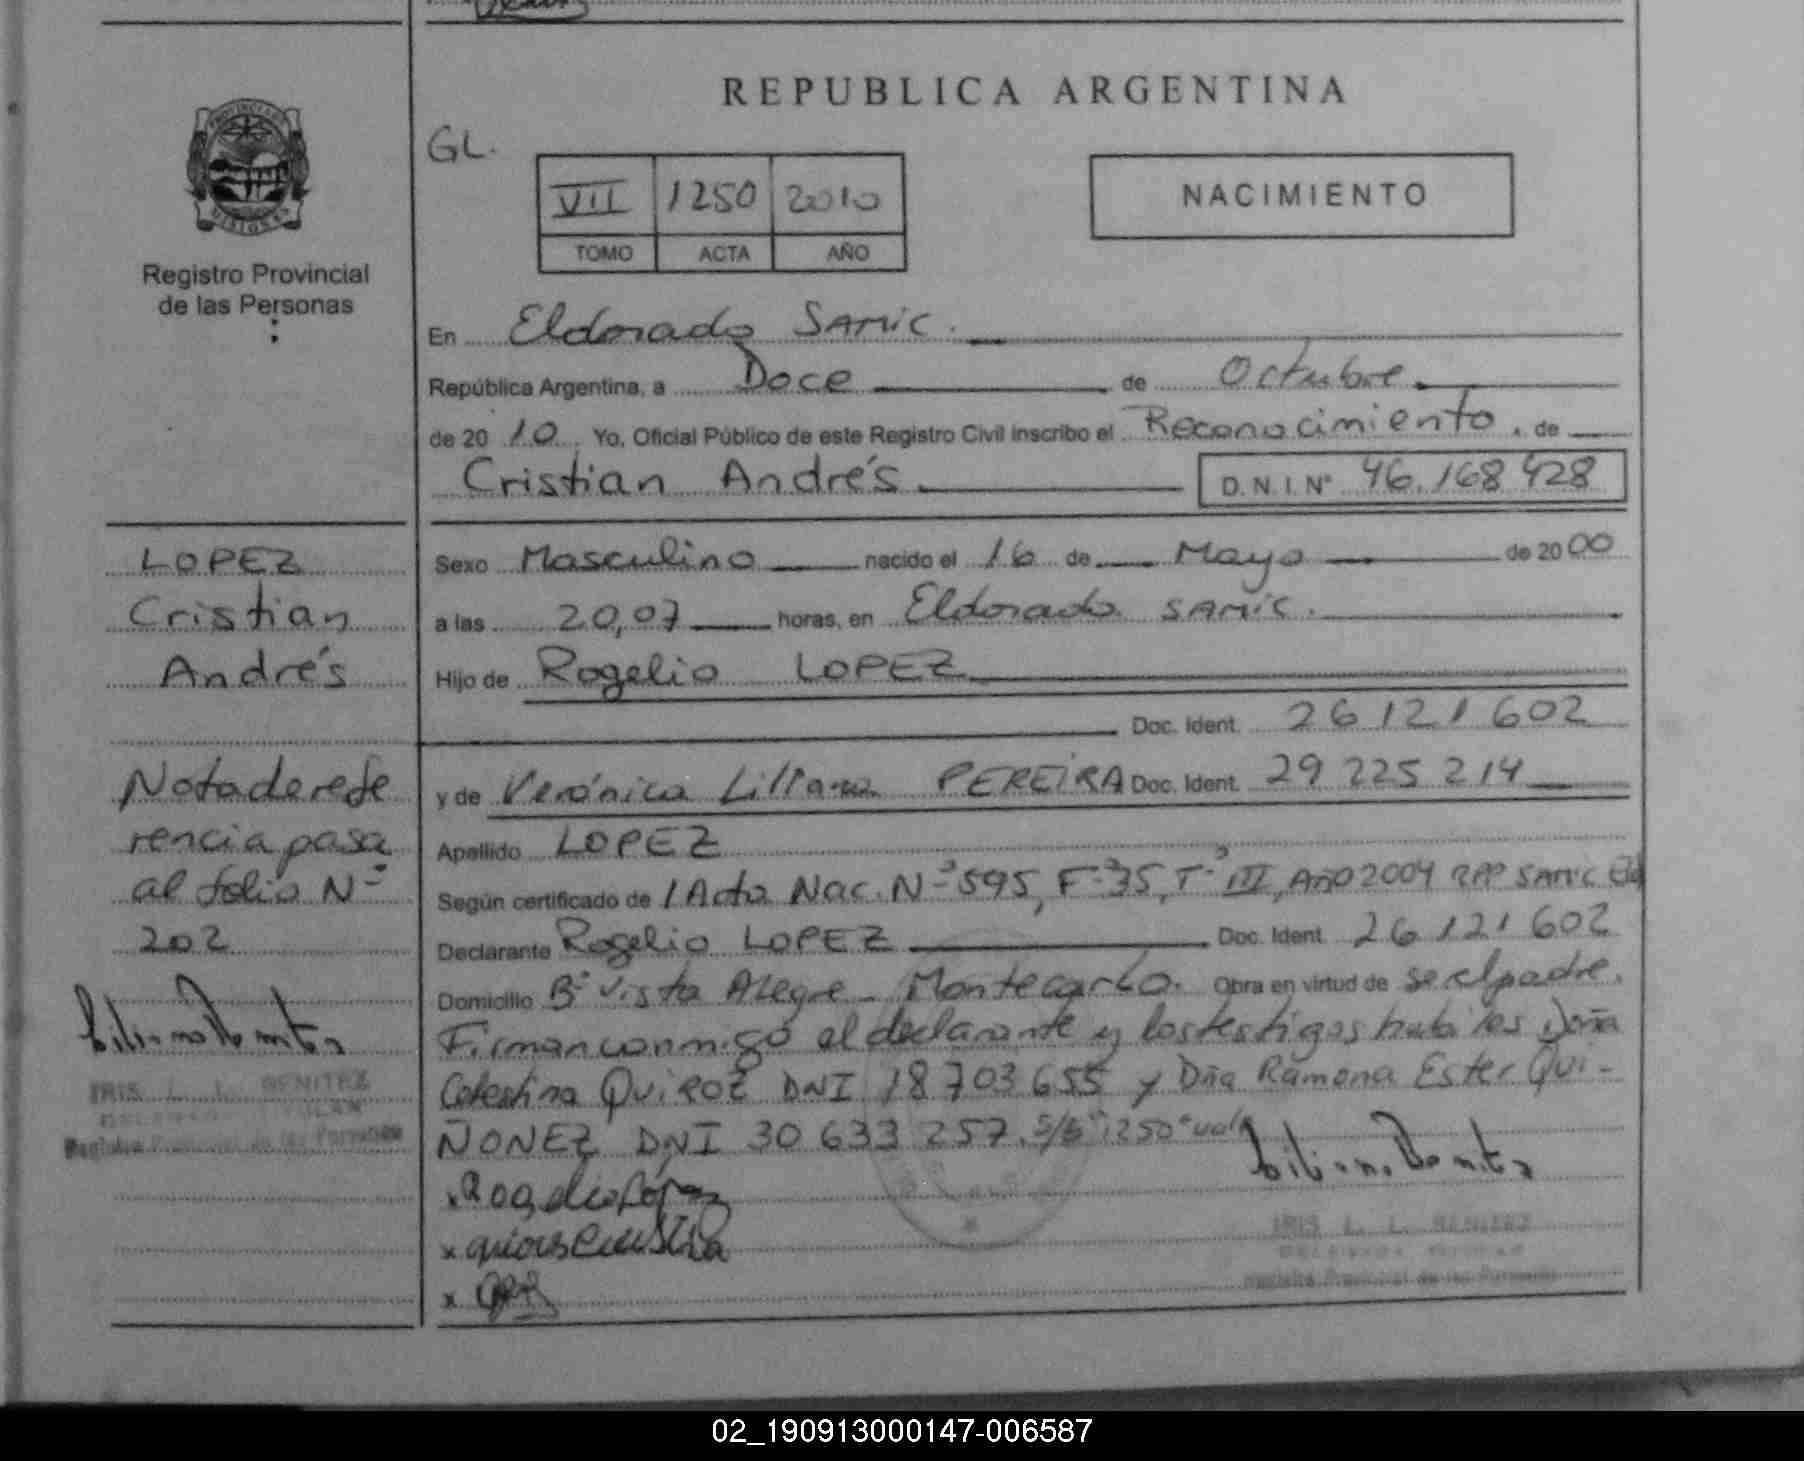 REPUBLICA ARGENTINA
PROVINCIA DE
MISIONES
Registro Provincial
de las Personas
GL.
VII 1250 2010
TOMO ACTA AÑO
NACIMIENTO
En Eldorado SAMIC.
República Argentina, a Doce de Octubre
de 20 10. Yo, Oficial Público de este Registro Civil inscribo el Reconocimiento. de
Cristian Andrés D.N.I. N° 46.168 428
LOPEZ
Cristian
Andrés
Nota de refe
rencia pasa
al folio Nº
202
IRIS L. L. BENITEZ
Registro Provincial de las Personas
Sexo Masculino nacido el 16 de Mayo de 2000
a las 20,07 horas, en Eldorado SAMIC.
Hijo de Rogelio LOPEZ
Doc. Ident. 26 121 602
y de Verónica Liliana PEREIRA Doc. Ident. 29 225 214
Apellido LOPEZ
Según certificado de / Acta Nac. Nº 595, Fº 35, Tº III, Año 2004 RPP SAMIC Eld
Declarante Rogelio LOPEZ Doc. Ident. 26 121 602
Domicilio Bº Vista Alegre - Montecarlo. Obra en virtud de ser el padre.
Firman conmigo el declarante y los testigos habiles Doña
Celestina QUIROZ DNI 18 703 655 y Dña Ramona Ester QUI-
ÑONEZ DNI 30 633 257. S/b "1250" vale
x Rogelio Lopez
x
x
IRIS L. L. BENITEZ
Registro Provincial de las Personas
02_190913000147-006587